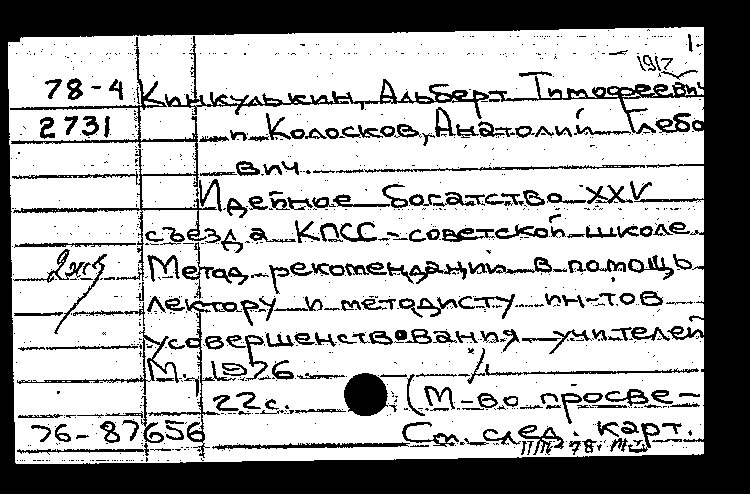 1.
1917
78-4 Кинкулькин, Альберт Тимофеевич
2731 и Колосков, Анатолий Глебо
вич.
Идейное богатство XXV
съезда КПСС - советской школе.
2экз Метод. рекомендации в помощь
лектору и методисту ин-тов
усовершенствования учителей
М. 1976.
22с. (М-во просве-
76-87656 См. след. карт.